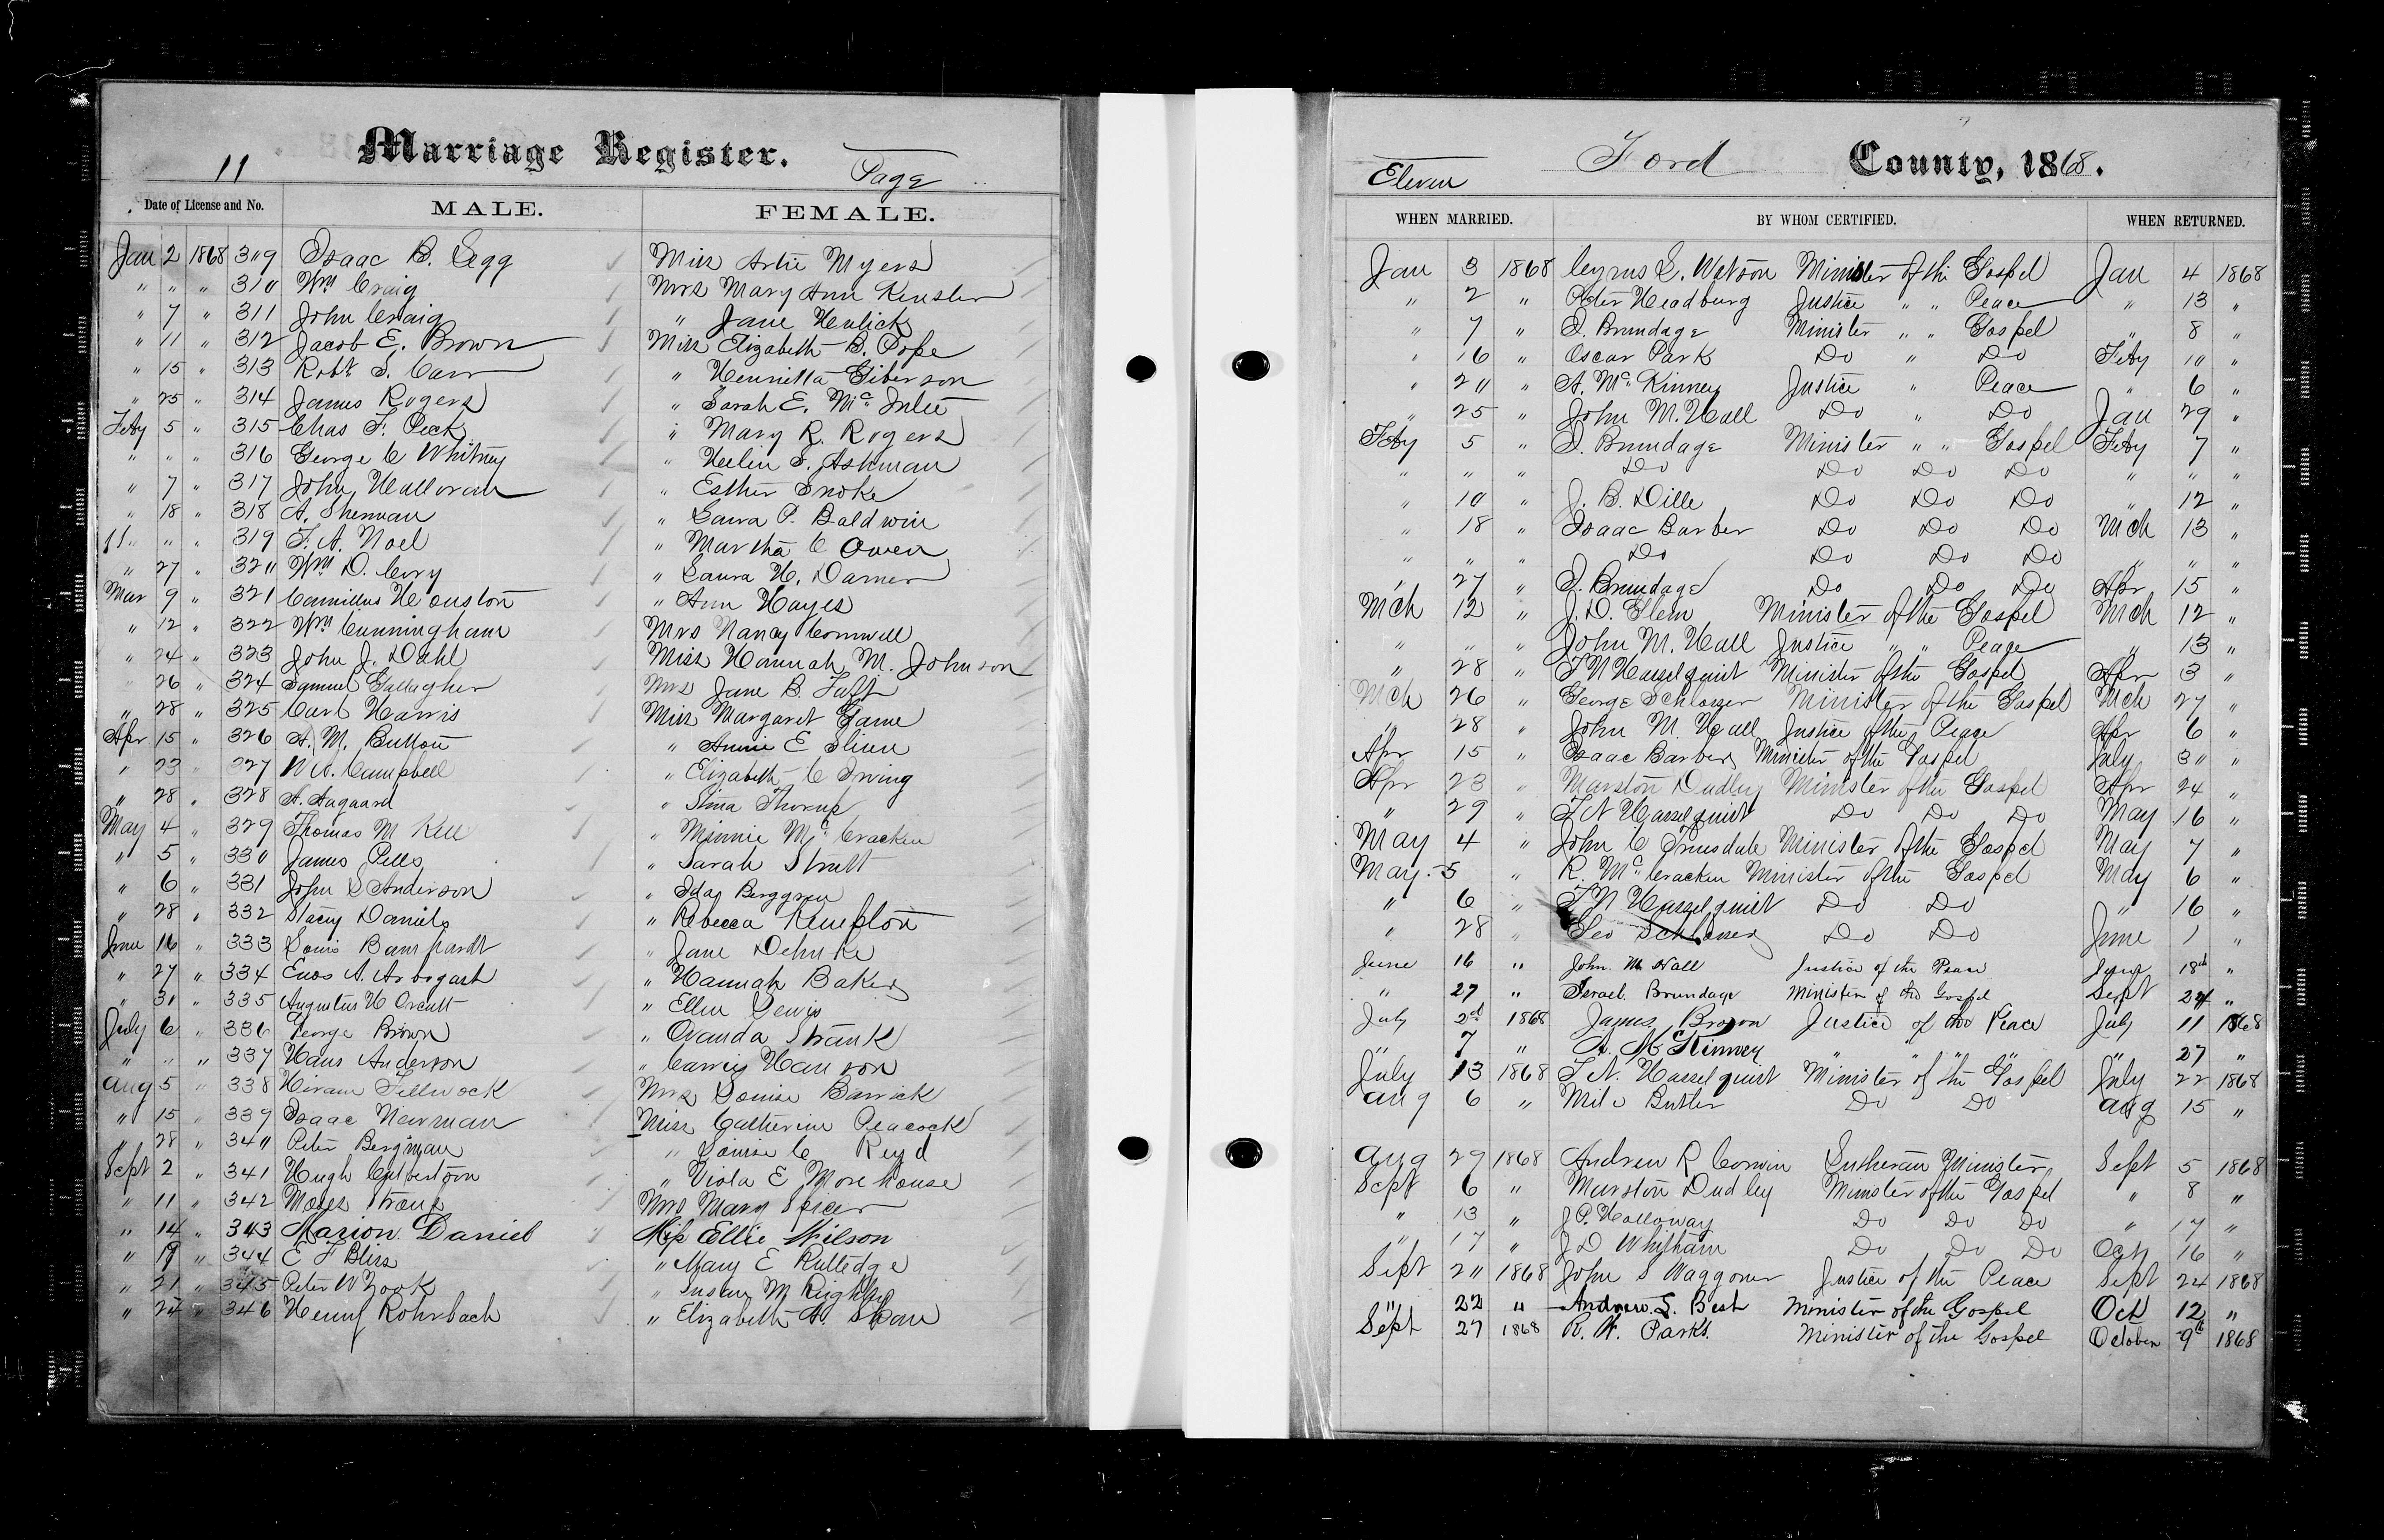 Marriage Register.
11
Page
Date of License and No. MALE. FEMALE.
Jan 2 1868 309 Isaac B. Legg Miss Artie Myers
" " " 310 Wm Craig Mrs Mary Ann Kensler
" 7 " 311 John Craig " Jane Henlick
" 11 " 312 Jacob E. Brown Miss Elizabeth B. Pope
" 15 " 313 Robt. S. Carr " Henrietta Giberson
" 25 " 314 James Rogers " Sarah E. Mc
Feby 5 " 315 Chas F. Peck " Mary R. Rogers
" " " 316 George C Whitney " Helen S. Ashman
" 7 " 317 John Halloran " Esther Snoke
" 18 " 318 A. Sherman " Laura P. Baldwin
" " " 319 F. A. Noel " Martha C Owen
" 27 " 320 Wm D. Cory " Laura H. Darner
Mar 9 " 321 Camillus Houston " Ann Hayes
" 12 " 322 Wm Cunningham Mrs Nancy Cornwell
" 24 " 323 John J. Dahl Miss Hannah M. Johnson
" 26 " 324 Samuel Gallagher Mrs Jane B. Taft
" 28 " 325 Carl Harris Miss Margaret Game
Apr 15 " 326 A. M. Button " Annie E Slinn
" 23 " 327 W A. Campbell " Elizabeth C Irving
" 28 " 328 A. Aagaard " Stina Thorup
May 4 " 329 Thomas M Kell " Minnie Mc Cracken
" 5 " 330 James Pells " Sarah Strutt
" 6 " 331 John S Anderson " Ida Berggren
" 28 " 332 Stacy Daniels " Rebecca Kempton
June 16 " 333 Louis Bamphardt " Jane Dehnke
" 27 " 334 Enos A. Arbogast " Hannah Baker
" 30 " 335 Augustus H Orcutt " Ellen Lewis
July 6 " 336 George Brown " Ovanda Strank
" " " 337 Hans Anderson " Carrie Hanson
Aug 5 " 338 Hiram Fellwock Mrs Louise Barrick
" 15 " 339 Isaac Newman Miss Catherine Peacock
" 28 " 340 Peter Bergman " Louise C Reyd
Sept 2 " 341 Hugh Culbertson " Viola E Morehouse
" 11 " 342 Moses Strong Mrs Mary Spicer
" 14 " 343 Marion Daniel Miss Ellie Wilson
" 19 " 344 E F Bliss " Mary E Rutledge
" 21 " 345 Peter W Zook " Susan M Rigby
" 24 " 346 Henry Rohrbach " Elizabeth A.
Eleven
Ford County, 1868.
WHEN MARRIED. BY WHOM CERTIFIED. WHEN RETURNED.
Jan 3 1868 Cyrus L. Watson Minister of the Gospel Jan 4 1868
" 2 " Peter Headburg Justice " " Peace " 13 "
" 7 " I. Brundage Minister " " Gospel " 8 "
" 16 " Oscar Park Do " Do Feby 10 "
" 20 " A. Mc Kinney Justice " Peace " 6 "
" 25 " John M. Hall Do " Do Jan 29 "
Feby 5 " I. Brundage Minister " " Gospel Feby 7 "
" " " Do Do Do Do " " "
" 10 " J. B. Dille Do Do Do " 12 "
" 18 " Isaac Barber Do Do Do Mch 13 "
" " " Do Do Do Do " " "
" 27 " I. Brundage Do Do Do Apr 15 "
Mch 12 " J. D. Glenn Minister of the Gospel Mch 12 "
" " " John M. Hall Justice " " Peace " 13 "
" 28 " T N Hasselquist Minister of the Gospel Apr 3 "
Mch 26 " George Schlosser Minister of the Gospel Mch 27 "
" 28 " John M. Hall Justice of the Peace Apr 6 "
Apr 15 " Isaac Barber Minister of the Gospel July 30 "
Apr 23 " Marston Dudley Minister of the Gospel Apr 24 "
" 29 " T. N Hasselquist Do Do Do May 16 "
May 4 " John C Truesdale Minister of the Gospel May 7 "
May 5 " R. Mc Cracken Minister of the Gospel May 6 "
" 6 " T N Hasselquist Do Do " 16 "
" 28 " Geo Schlosser Do Do June 1 "
June 16 " John. M. Hall Justice of the Peace June 18th "
" 27 " Israel. Brundage Minister of the Gospel Sept 24 "
July 2d 1868 James Brown Justice of the Peace July 11 1868
" 7 " A. McKinney " " " " " 27 "
July 13 1868 T. N. Hasselquist Minister of the Gospel July 22 1868
Aug 6 " Milo Butler Do Do Aug 15 "
Aug 29 1868 Andrew R Corwin Lutheran Minister Sept 5 1868
Sept 6 " Marston Dudley Minister of the Gospel " 8 "
" 13 " J P. Holloway Do Do Do " 17 "
" 17 " J D Whitham Do Do Do Oct 16 "
Sept 20 1868 John S Waggoner Justice of the Peace Sept 24 1868
" 22 " Andrew S. Best Minister of the Gospel Oct 12 "
Sept 27 1868 R. W. Parks. Minister of the Gospel October 9th 1868